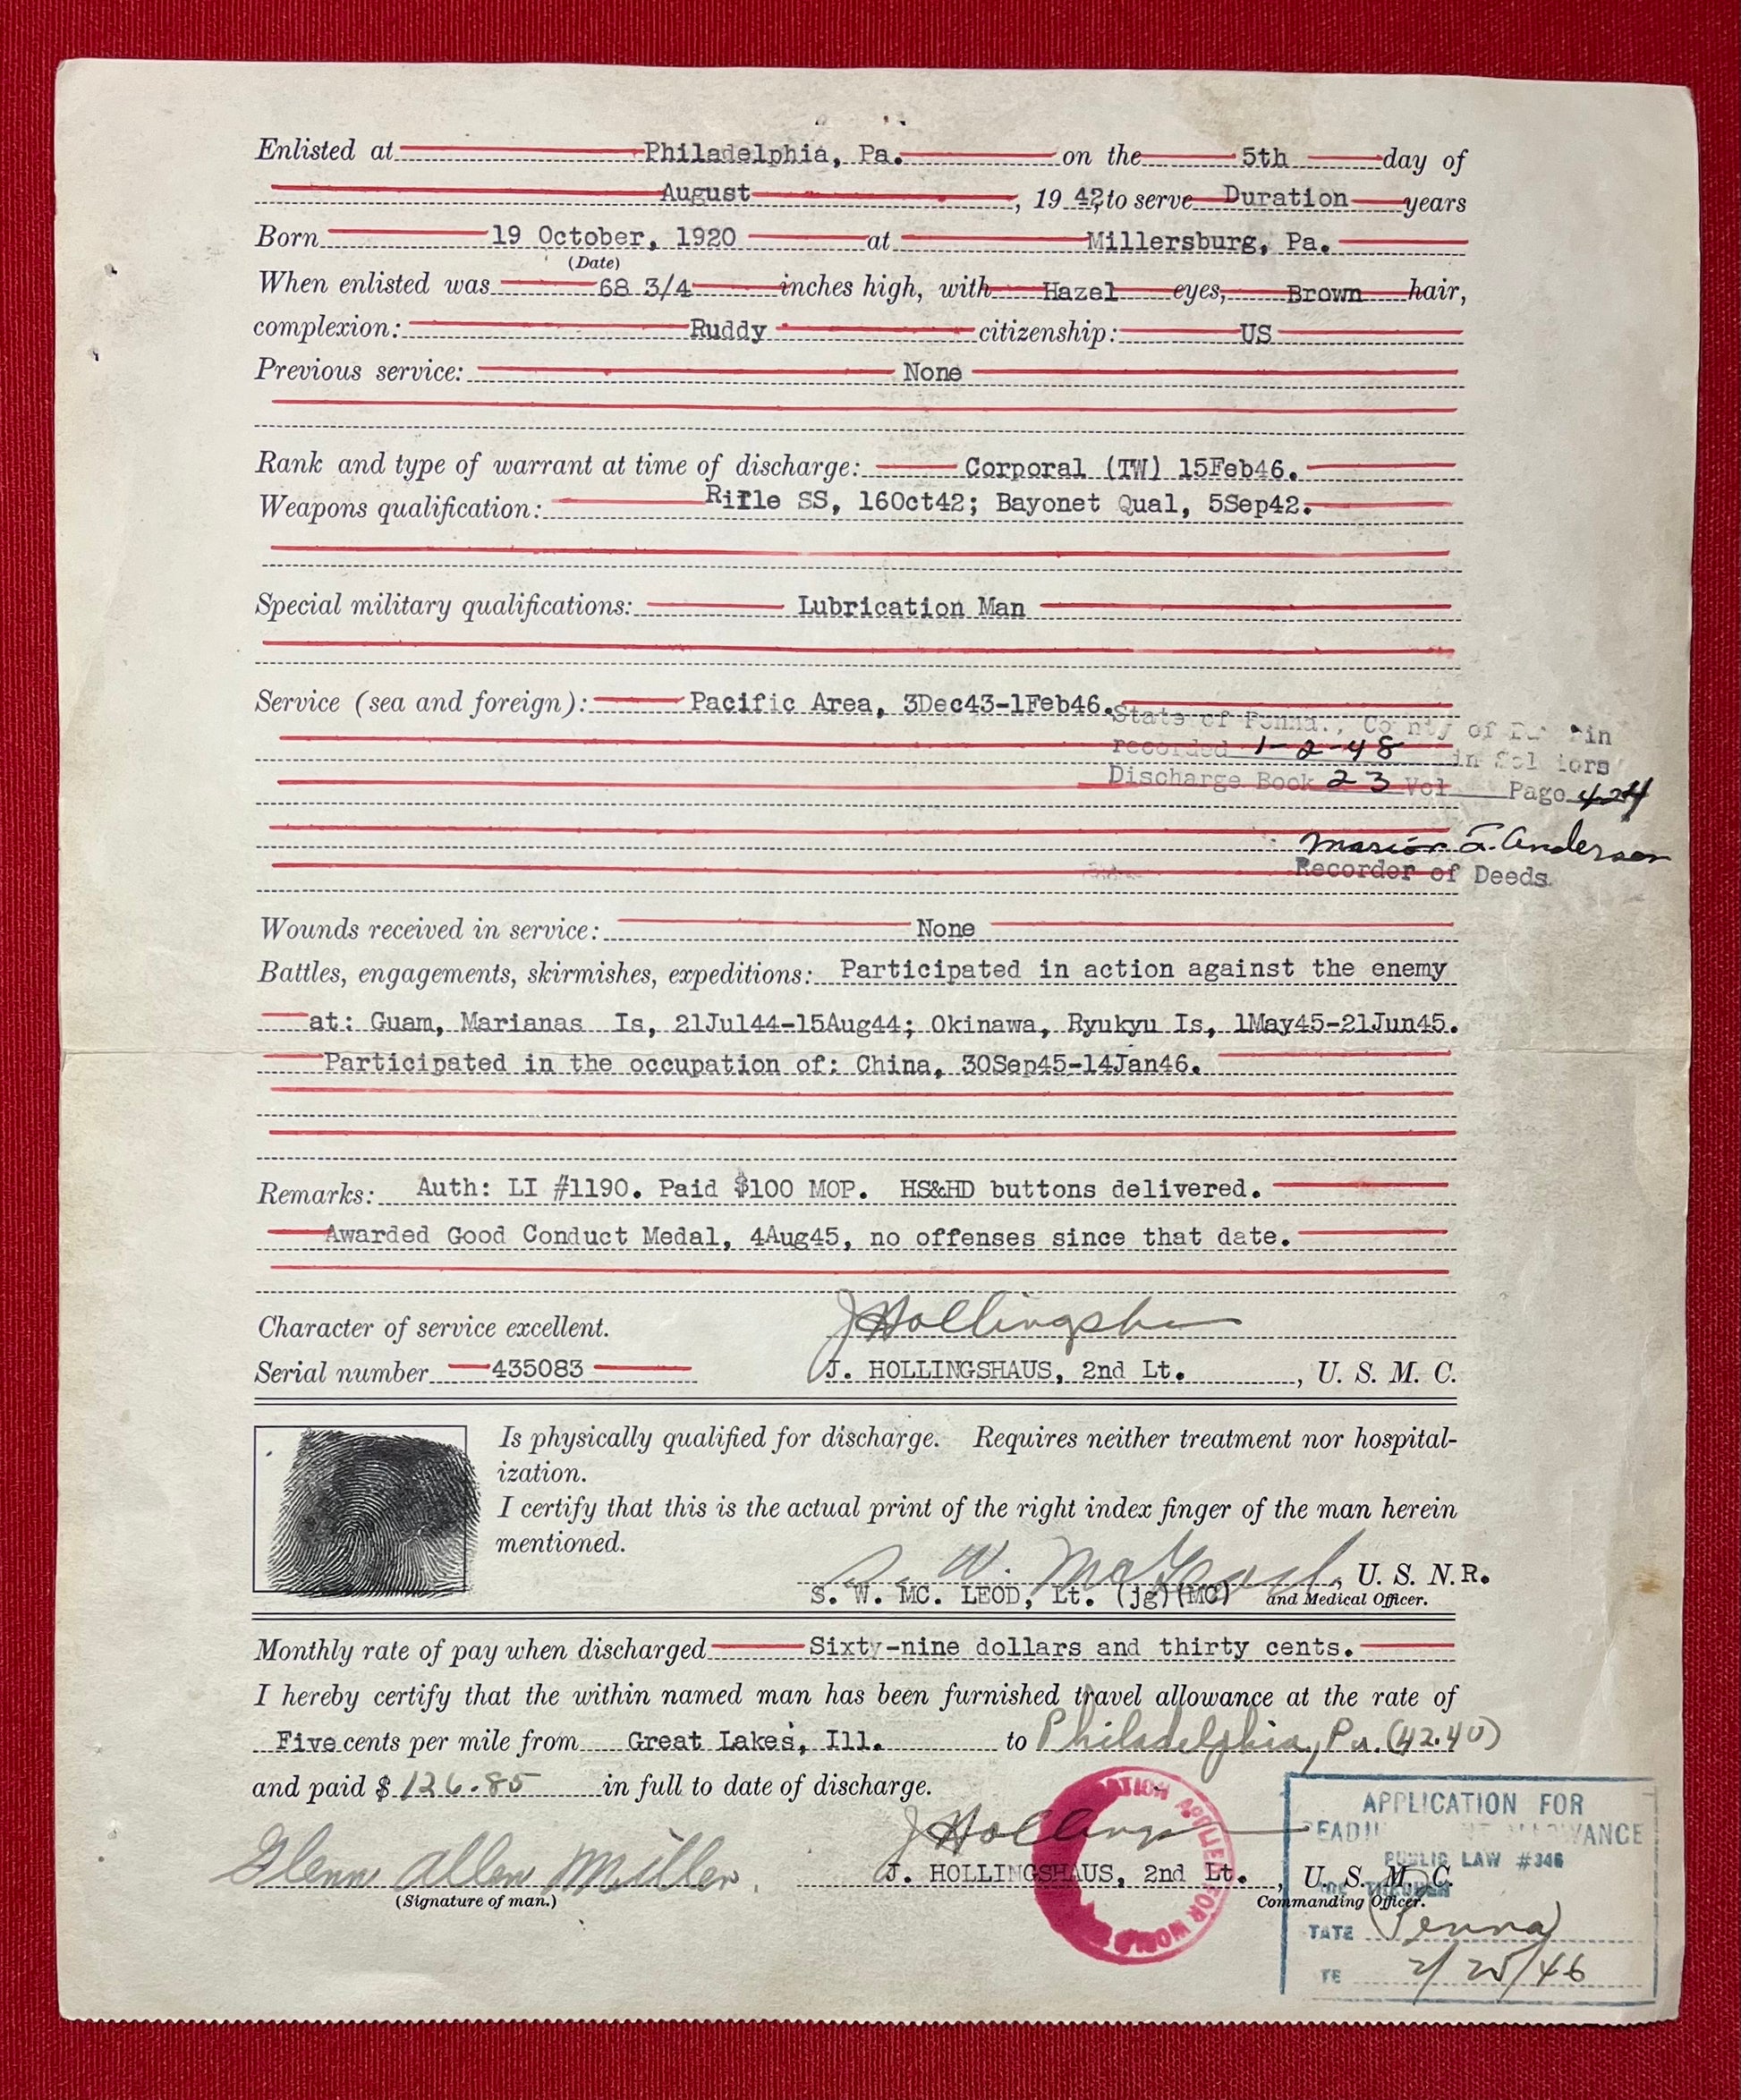 Enlisted at Philadelphia, Pa. on the 5th day of
August, 19 42, to serve Duration years
Born 19 October, 1920 at Millersburg, Pa.
(Date)
When enlisted was 68 3/4 inches high, with Hazel eyes, Brown hair,
complexion: Ruddy citizenship: US
Previous service: None
Rank and type of warrant at time of discharge: Corporal (TW) 15Feb46.
Weapons qualification: Rifle SS, 16Oct42; Bayonet Qual, 5Sep42.
Special military qualifications: Lubrication Man
Service (sea and foreign): Pacific Area, 3Dec43-1Feb46.
State of Penna., County of
recorded 1-2-48 in
Discharge Book 23 Vol Page 424
Marion E. Anderson
Recorder of Deeds
Wounds received in service: None
Battles, engagements, skirmishes, expeditions: Participated in action against the enemy
at: Guam, Marianas Is, 21Jul44-15Aug44; Okinawa, Ryukyu Is, 1May45-21Jun45.
Participated in the occupation of: China, 30Sep45-14Jan46.
Remarks: Auth: LI #1190. Paid $100 MOP. HS&HD buttons delivered.
Awarded Good Conduct Medal, 4Aug45, no offenses since that date.
Character of service excellent.
Serial number 435083 J. HOLLINGSHAUS, 2nd Lt., U. S. M. C.
Is physically qualified for discharge. Requires neither treatment nor hospital-
ization.
I certify that this is the actual print of the right index finger of the man herein
mentioned.
S. W. McLeod, U. S. N.R.
S. W. MC. LEOD, Lt. (jg)(MC) and Medical Officer.
Monthly rate of pay when discharged Sixty-nine dollars and thirty cents.
I hereby certify that the within named man has been furnished travel allowance at the rate of
Five cents per mile from Great Lakes, Ill. to Philadelphia, Pa. (42.40)
and paid $ 126.85 in full to date of discharge.
Glenn Allen Miller.
(Signature of man.)
J. HOLLINGSHAUS, 2nd Lt., U. S. M. C.
Commanding Officer.
APPLIED FOR WORLD
APPLICATION FOR
ALLOWANCE
PUBLIC LAW #346
THROUGH
TATE Penna
TE 2/25/46